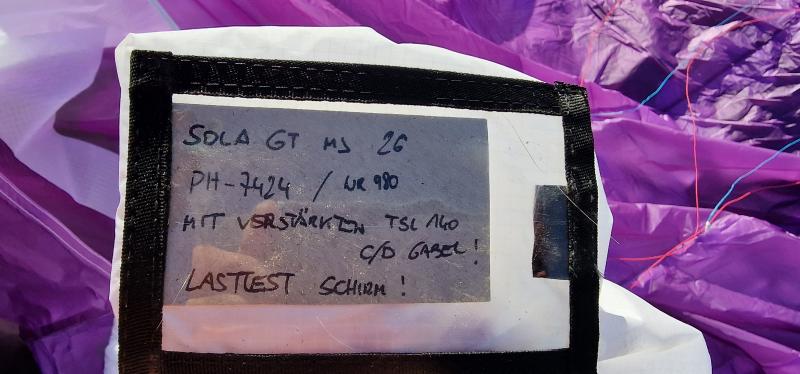 SOLA GT MS 26
PH-7424 / WR 980
MIT VERSTÄRKTEN TSL 140
C/D GABEL!
LASTTEST SCHIRM!